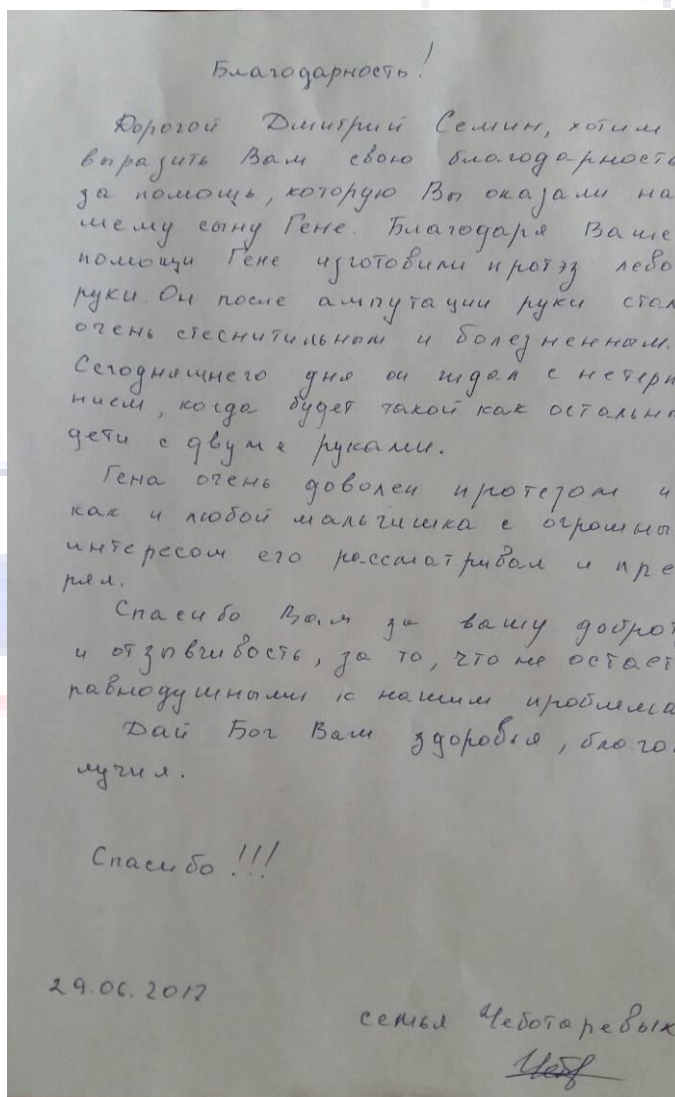 Благодарность!
Дорогой Дмитрий Семин, хотим
выразить Вам свою благодарность
за помощь, которую Вы оказали на
шему сыну Гене. Благодаря Ваше
помощи Гене изготовили протэз лево
руки. Он после ампутации руки стал
очень стеснитильным и болезненным.
Сегодняшнего дня он ждал с нетерп
нием, когда будет такой как остальн
дети с двумя руками.
Гена очень доволен протезом и
как и любой мальчишка с огромны
интересом его рассматривал и при
рял.
Спасибо Вам за вашу доброт
и отзывчивость, за то, что не остает
равнодушными к нашим проблема
Дай Бог Вам здоровья, благо
лучия.
Спасибо!!!
29.06.2017
семья Чеботаревых